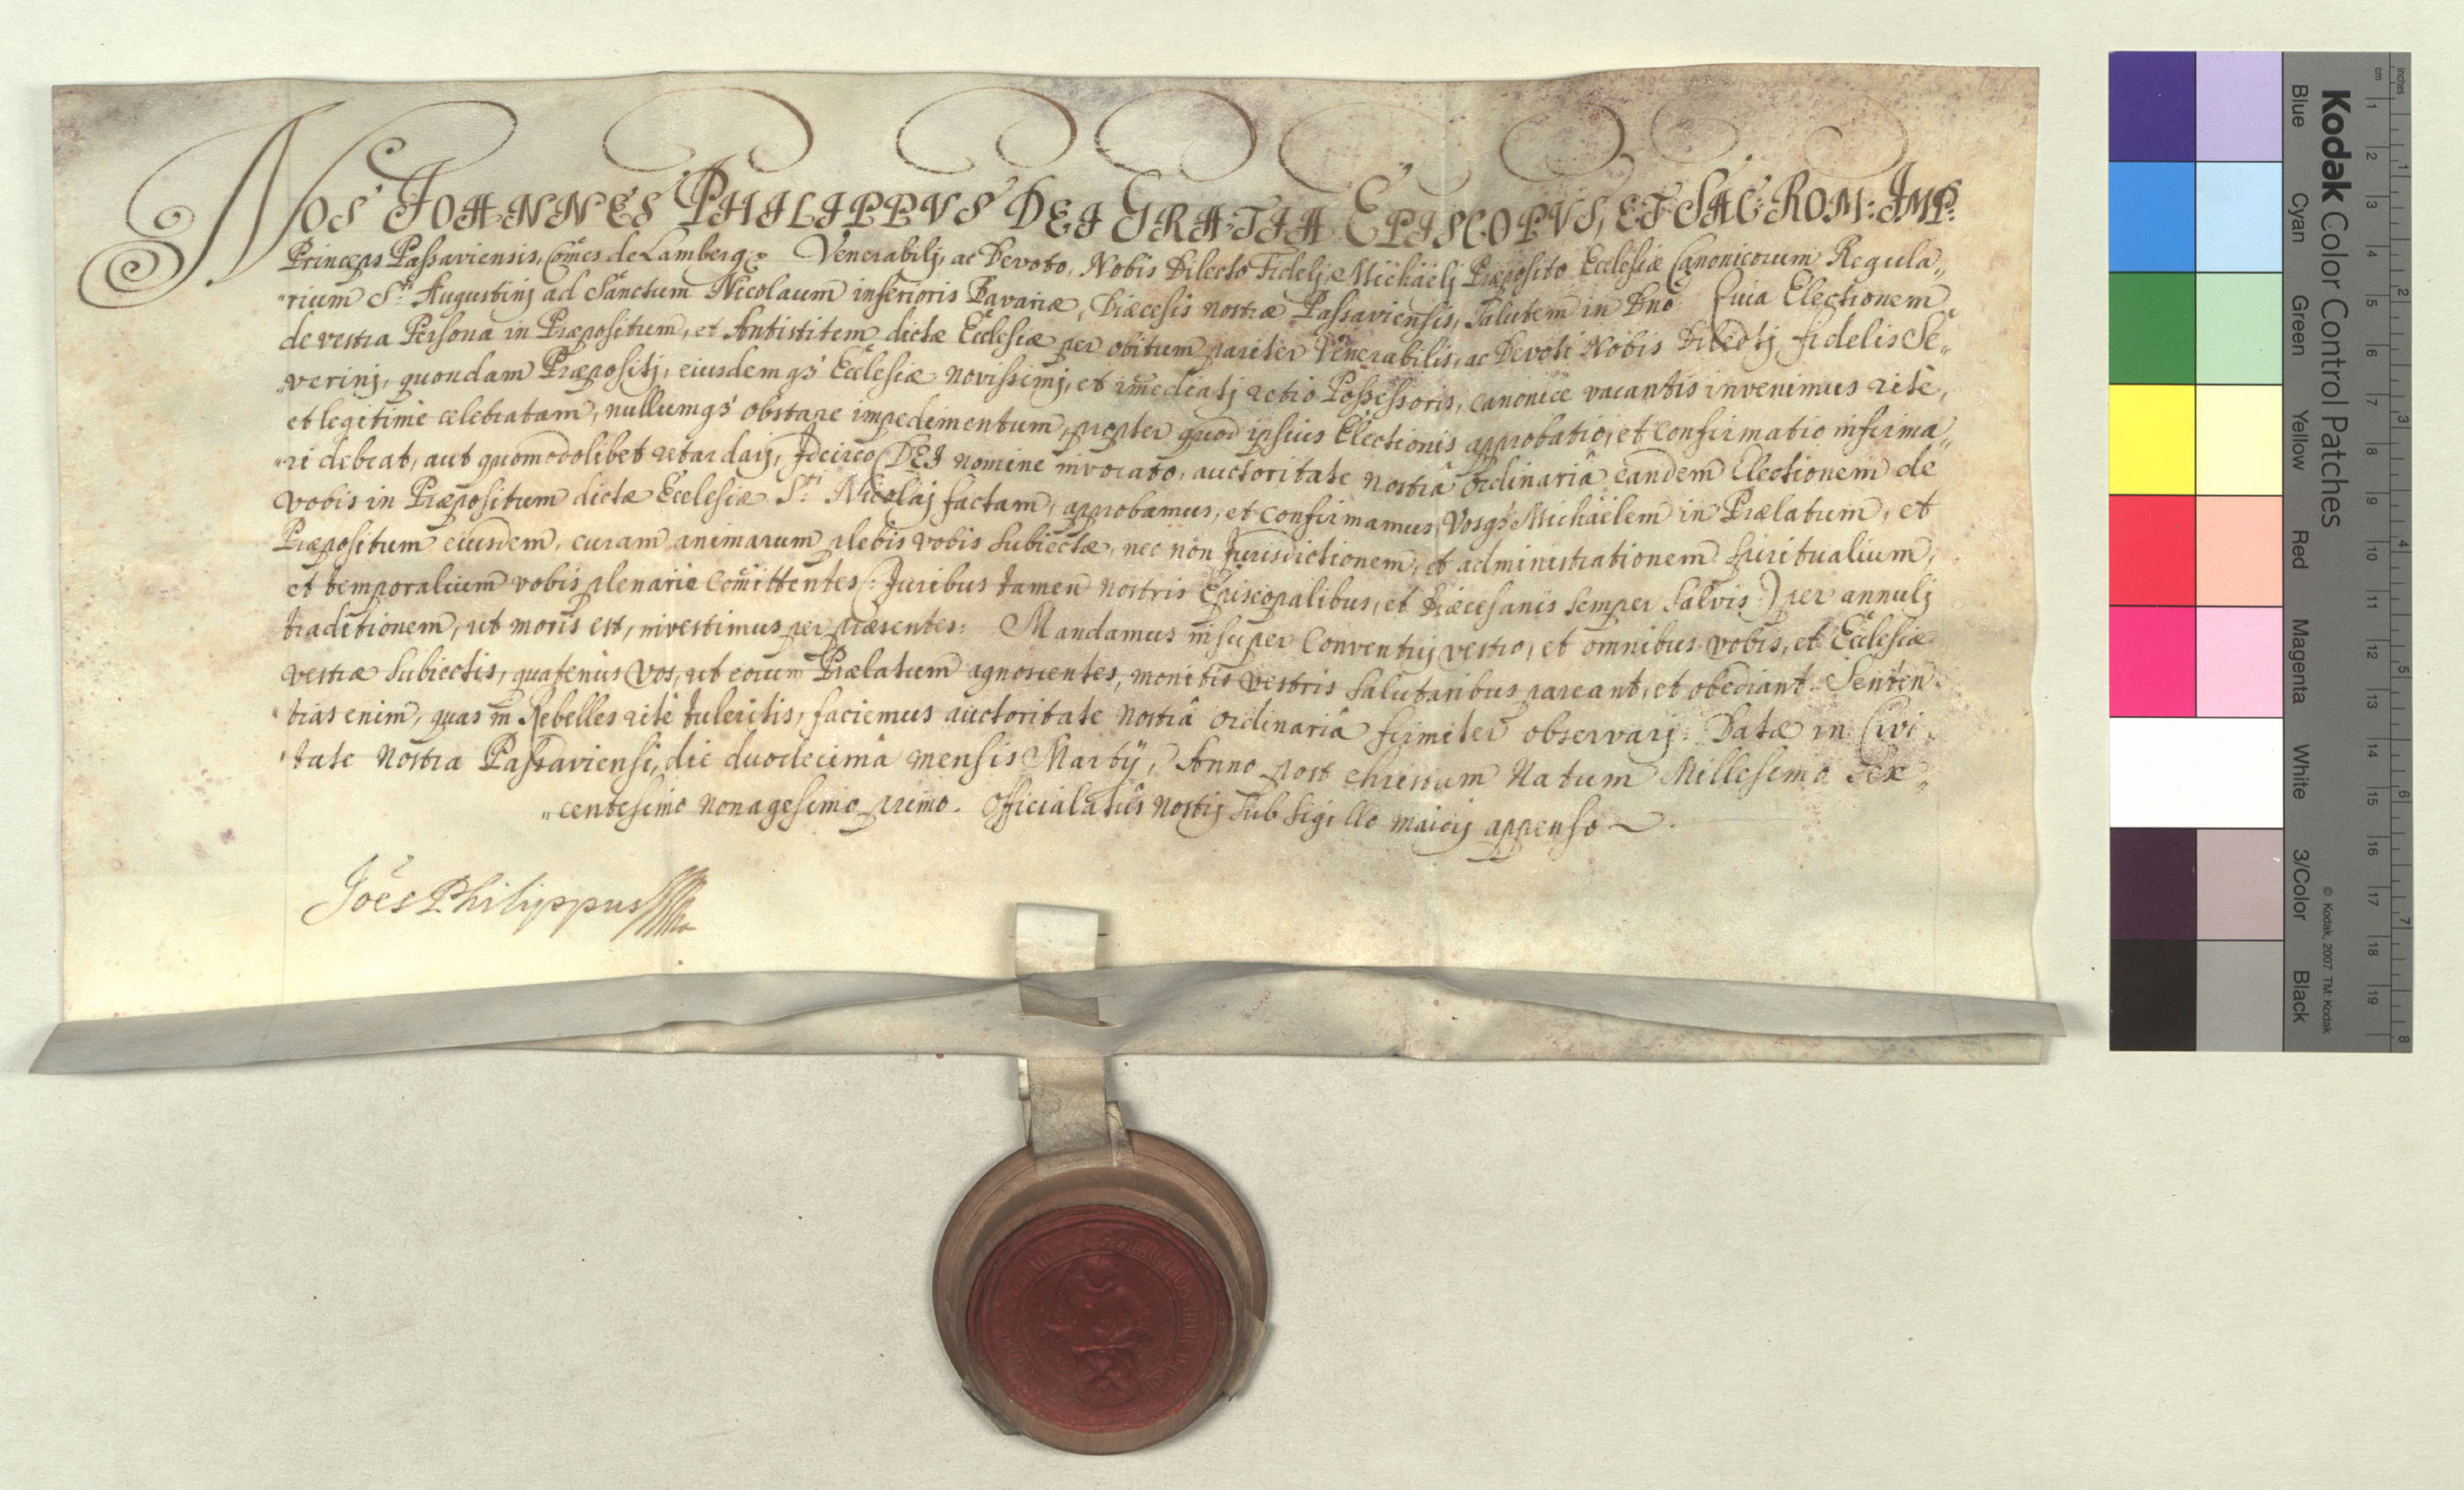 NOS JOHANNES PHILIPPVS DEI GRATIA EPISCOPVS, ET SAC: ROM: IMP:
Princeps Passaviensis, Comes de Lamberg &c. Venerabilj, ac Devoto, Nobis Dilecto Fidelj Michaëlj Præposito Ecclesiæ Canonicorum Regula„
„rium S:ti Augustinj ad Sanctum Nicolaum inferioris Bavariæ, Diæcesis nostræ Passaviensis, Salutem in Dno. Quia Electionem
de vestra Persona in Præpositum, et Antistitem dictæ Ecclesiæ per obitum pariter Venerabilis, ac Devoti Nobis Dilectj fidelis Se„
„verinj, quondam Præpositj, eiusdemqs Ecclesiæ novissimj, et imediatj retro Possessoris, canonice vacantis invenimus ritè,
et legitimè celebratam, nullumqs obstare impedimentum, propter quod ipsius Electionis approbatio, et confirmatio infirma„
„ri debeat, aut quomodolibet retardarj, Idcirco DEI nomine invocato, auctoritate nostrâ ordinariâ eandem Electionem de
vobis in Præpositum dictæ Ecclesiæ S:ti Nicolaj factam, approbamus, et confirmamus, Vosqs Michaëlem in Prælatum, et
Præpositum eiusdem, curam animarum plebis vobis subiectæ, nec non Jurisdictionem, et administrationem spiritualium,
et temporalium vobis plenariè comittentes (: Juribus tamen nostris Episcopalibus, et Diæcesanis semper salvis :) per annulj
traditionem, ut moris est, investimus per præsentes: Mandamus insuper Conventuj vestro, et omnibus vobis, et Ecclesiæ
vestræ subiectis, quatenùs vos, ut eorum Prælatum agnoscentes, monitis vestris salutaribus pareant, et obediant. Senten„
„tias enim, quas in Rebelles ritè tuleritis, faciemus auctoritate nostrâ ordinariâ firmiter observarj. Datæ in Civi„
„tate nostra Passaviensi, die duodecimâ mensis Martij, Anno post christum Natum Millesimo sex„
„centesimo nonagesimo primo. Officialatûs nostrj sub sigillo maiorj appenso
Joês Philippus
Kodak Color Control Patches
Blue Cyan Green Yellow Red Magenta White 3/Color Black
© Kodak, 2007 TM: Kodak
cm 1 2 3 4 5 6 7 8 9 10 11 12 13 14 15 16 17 18 19
inches 1 2 3 4 5 6 7 8